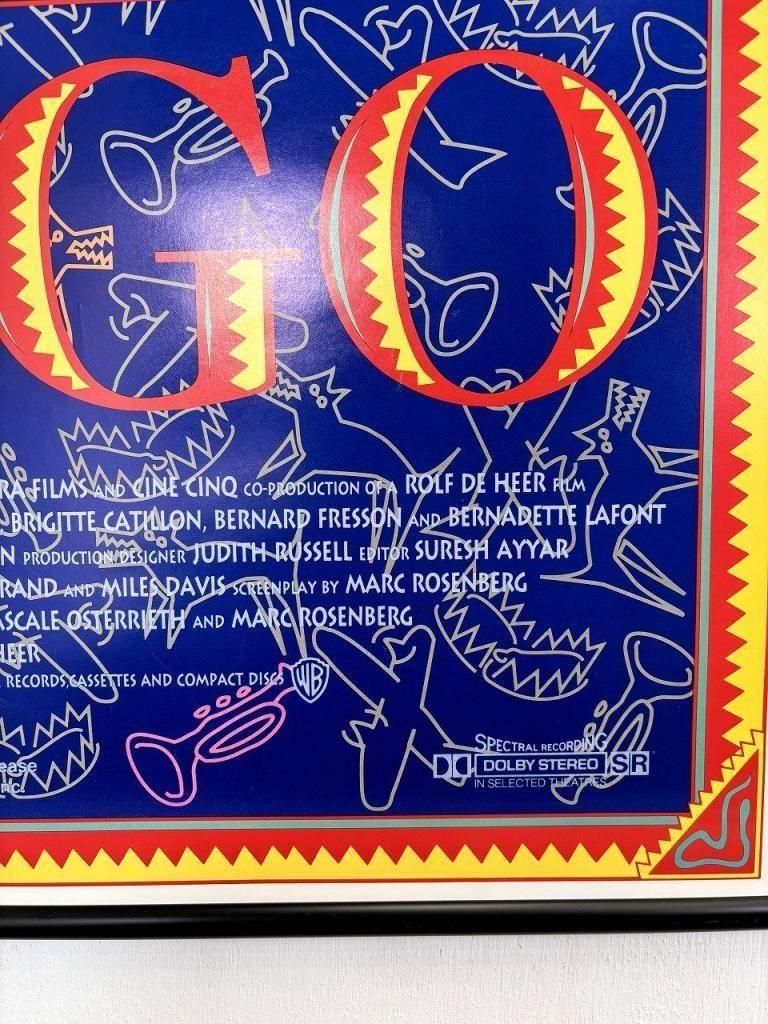 GO
RA FILMS AND CINE CINQ CO-PRODUCTION OF A ROLF DE HEER FILM
BRIGITTE CATILLON, BERNARD FRESSON AND BERNADETTE LAFONT
N PRODUCTION DESIGNER JUDITH RUSSELL EDITOR SURESH AYYAR
RAND AND MILES DAVIS SCREENPLAY BY MARC ROSENBERG
ASCALE OSTERRIETH AND MARC ROSENBERG
HEER
RECORDS, CASSETTES AND COMPACT DISCS WB
ease
nc.
SPECTRAL RECORDING
DOLBY STEREO SR
IN SELECTED THEATRES